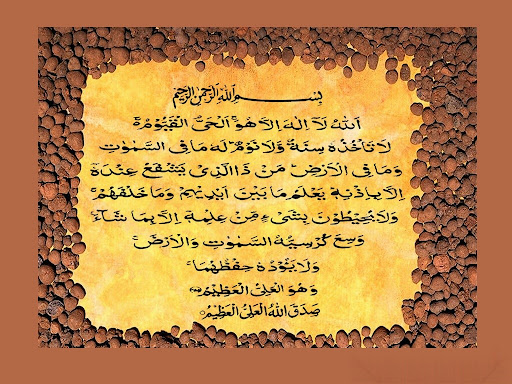 بسم الله الرحمن الرحيم
الله لا اله الا هو الحي القيوم
لا تأخذه سنة ولا نوم له ما في السموت
وما في الارض من ذا الذي يشفع عنده
الا باذنه يعلم ما بين ايديهم وما خلفهم
ولا يحيطون بشيء من علمه الا بما شاء
وسع كرسيه السموت والارض
ولا يؤده حفظهما
وهو العلي العظيم
صدق الله العلي العظيم